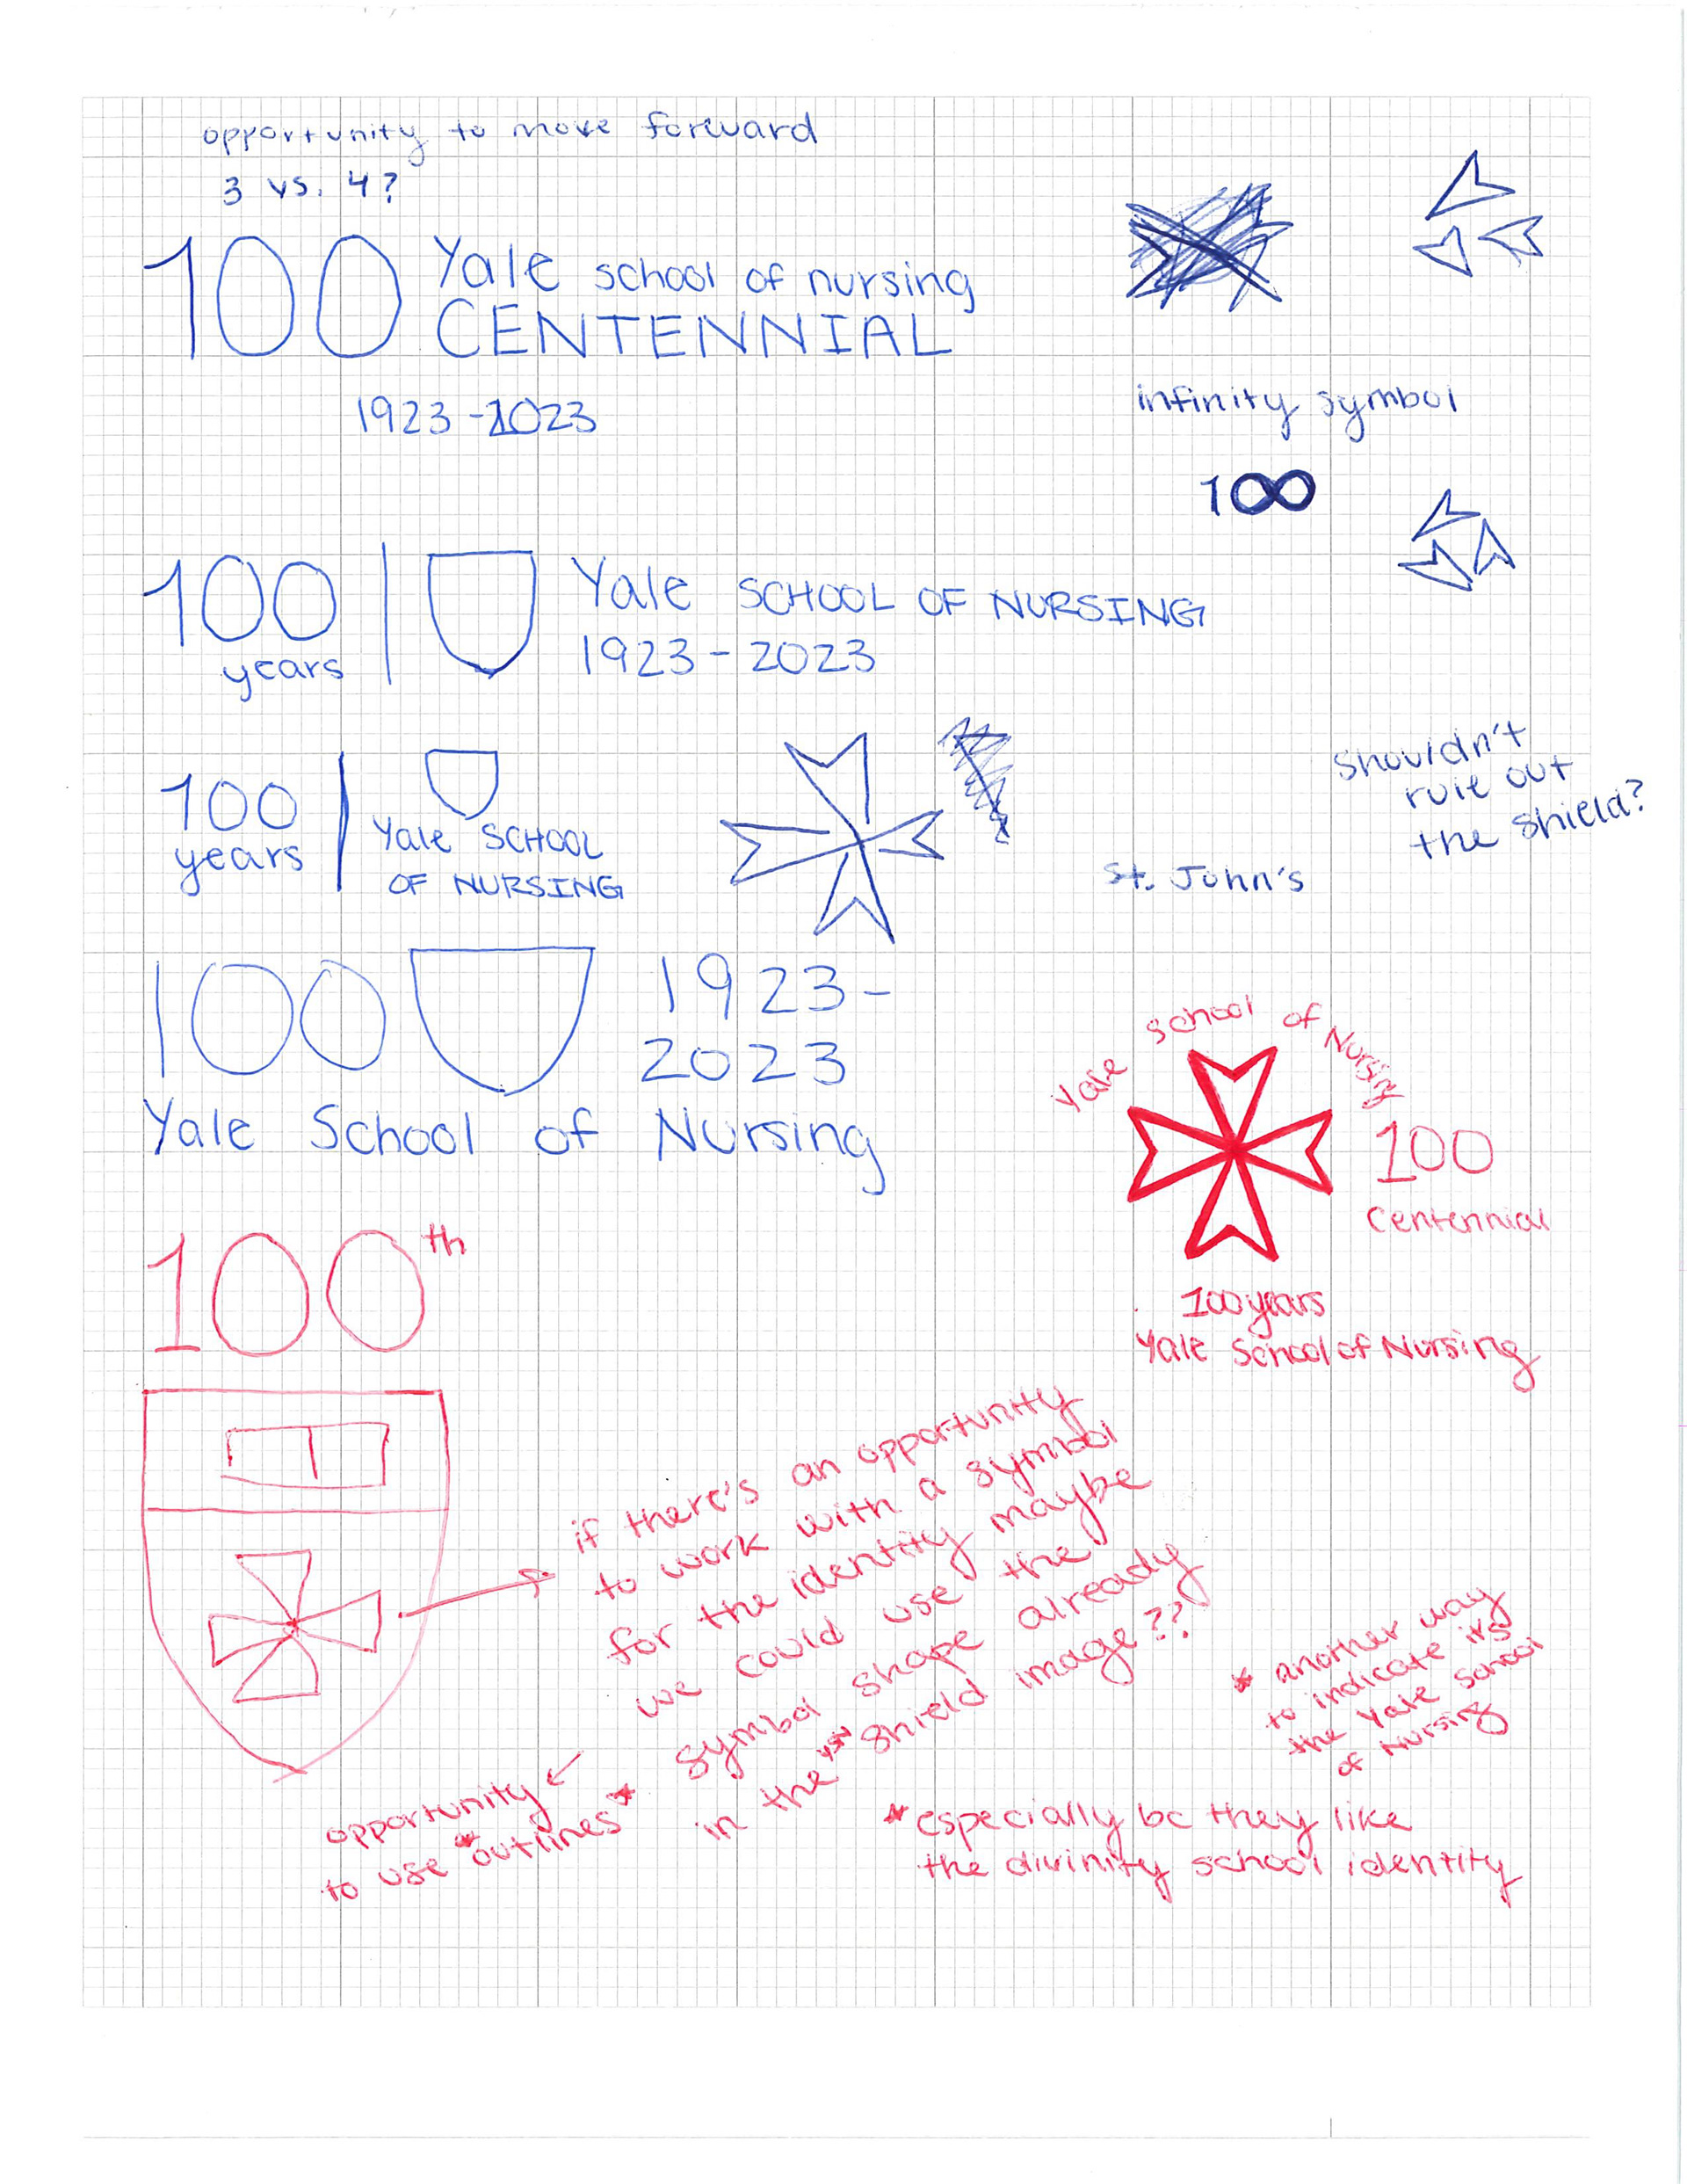 opportunity to move forward
3 vs. 4?
100 Yale school of nursing
CENTENNIAL
1923-2023
infinity symbol
100
100 years
Yale SCHOOL OF NURSING
1923-2023
100 years
Yale SCHOOL
OF NURSING
Shouldn't
rule out
the shield?
St. John's
100
1923-
2023
Yale School of Nursing
Yale School of Nursing
100
Centennial
100 years
Yale School of Nursing
100th
if there's an opportunity
to work with a symbol
for the identity maybe
we could use the
symbol shape already
in the YSN shield image??
opportunity
to use "outlines"
* another way
to indicate its
the Yale School
of Nursing
*especially bc they like
the divinity school identity